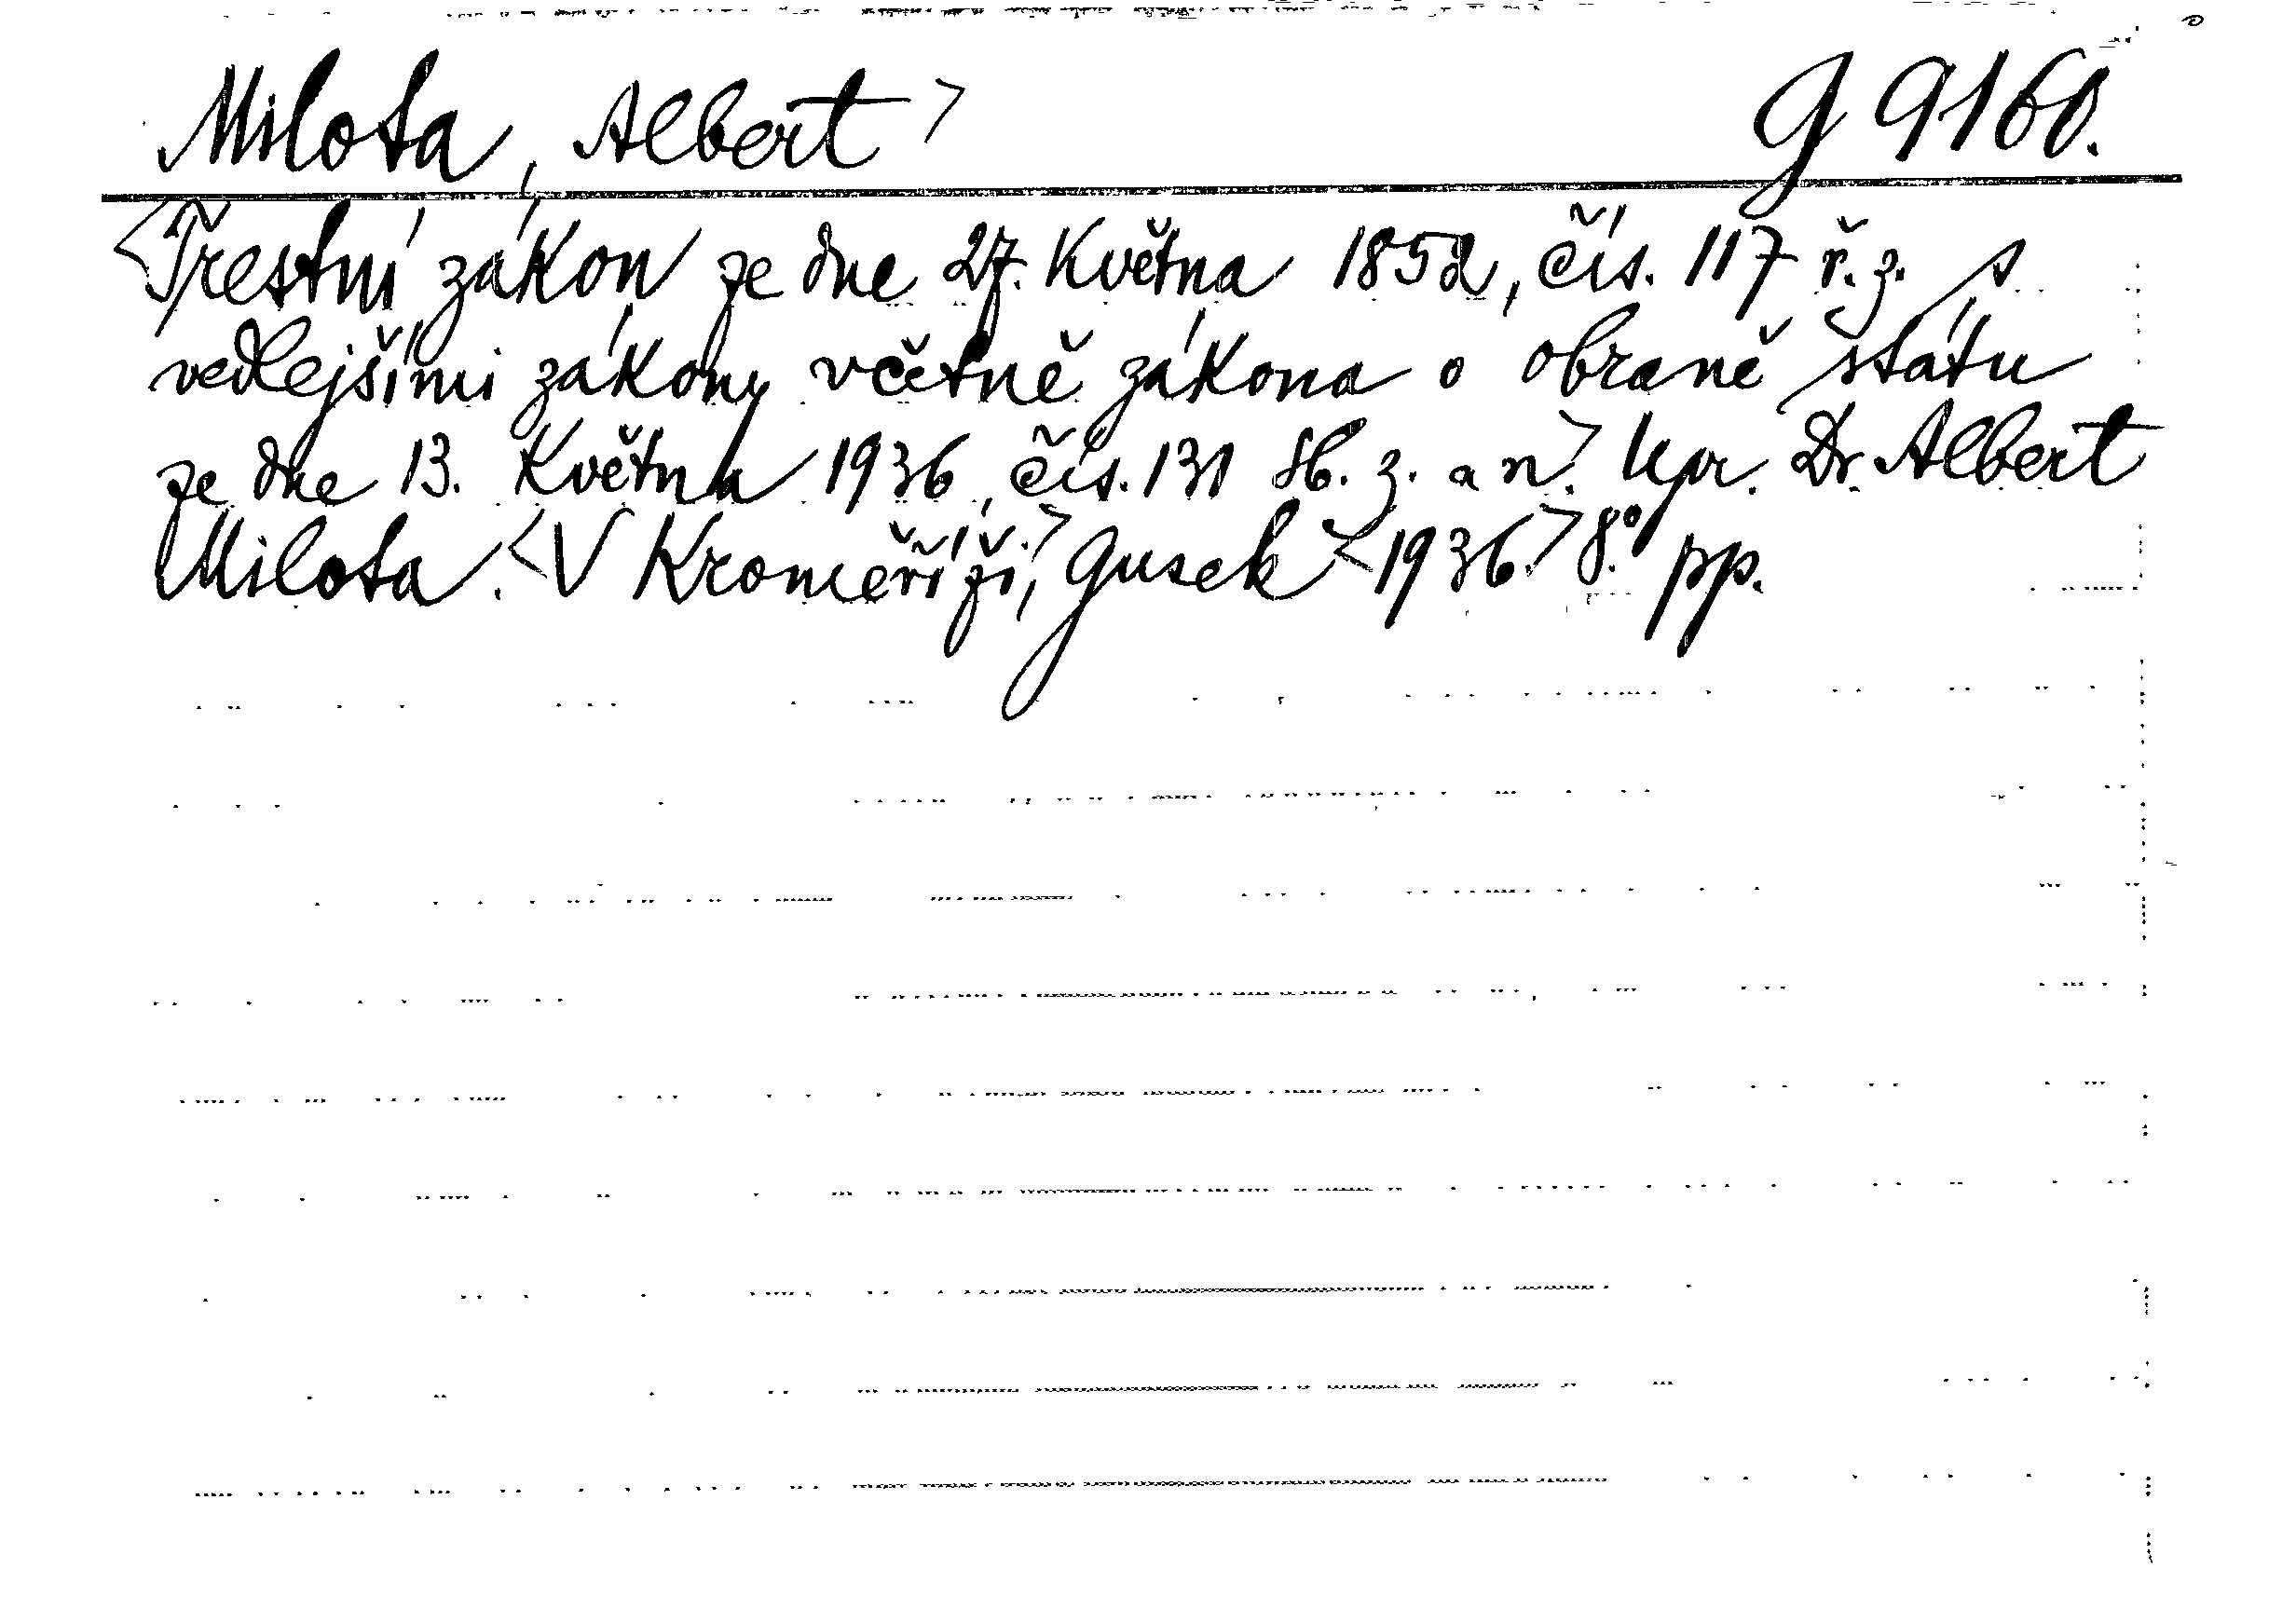 Milota, Albert> g 9160.
<Trestní zákon ze dne 27. Května 1852, čís. 117 ř. z. s
vedlejšími zákony včetně zákona o obraně státu
ze dne 13. Května 1936, čís. 131 Sb. z. a n.> Upr. Dr. Albert
Milota. <V Kroměříži,> Gusek <1936.> 8.° pp.